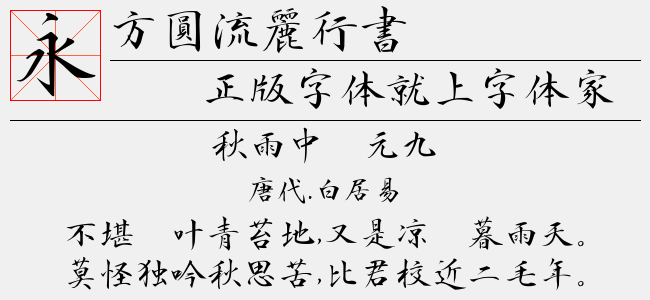 永
方圓流麗行書
正版字体就上字体家
秋雨中　元九
唐代.白居易
不堪　叶青苔地,又是凉　暮雨天。
莫怪独吟秋思苦,比君校近二毛年。